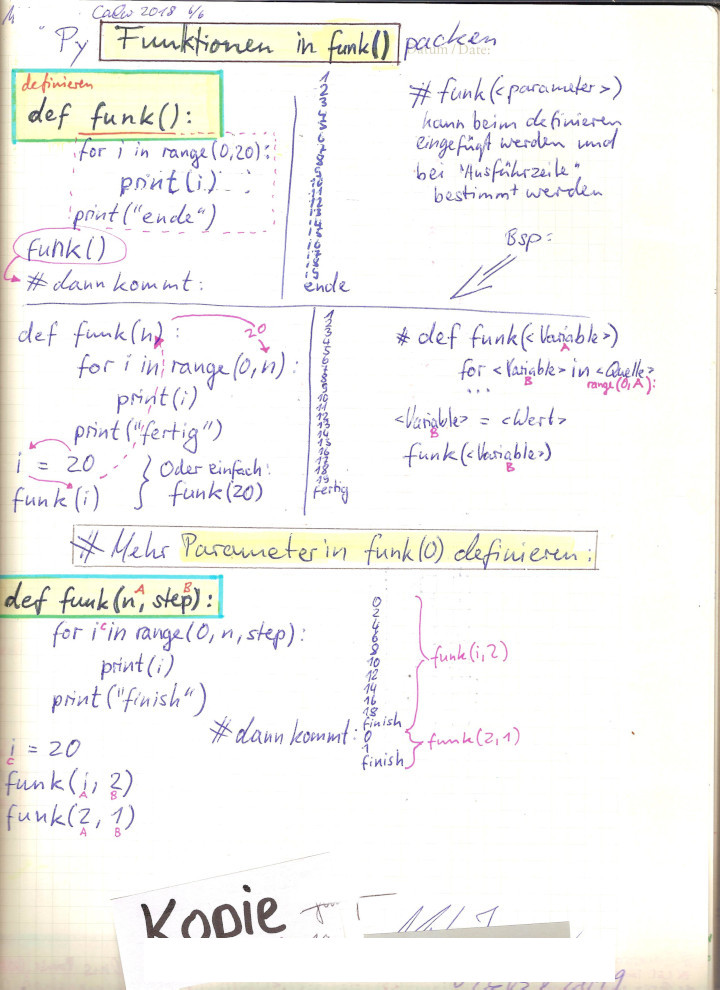 Calw 2018 6/6
Py Funktionen in funk() packen
Datum / Date:
definieren
def funk():
for i in range(0,20):
print(i)
print("ende")
funk()
# dann kommt:
1
2
3
4
5
6
ende
# funk(<parameter>)
kann beim definieren
eingefügt werden und
bei "Ausführzeile"
bestimmt werden
Bsp:
def funk(n):
20
for i in range(0,n):
print(i)
print("fertig")
i = 20
funk(i)
Oder einfach:
funk(20)
1
2
3
4
5
6
7
8
9
10
11
12
13
14
15
16
17
18
19
fertig
# def funk(<Variable>)
A
for <Variable> in <Quelle>
B range(0,A):
...
<Variable> = <Wert>
B
funk(<Variable>)
B
# Mehr Parameter in funk() definieren:
A B
def funk(n, step):
for i c in range(0, n, step):
print(i)
print("finish")
i = 20
c
funk(i, 2)
A B
funk(2, 1)
A B
# dann kommt:
0
2
4
6
8
10
12
14
16
18
finish
0
1
finish
funk(i,2)
funk(2,1)
Kopie